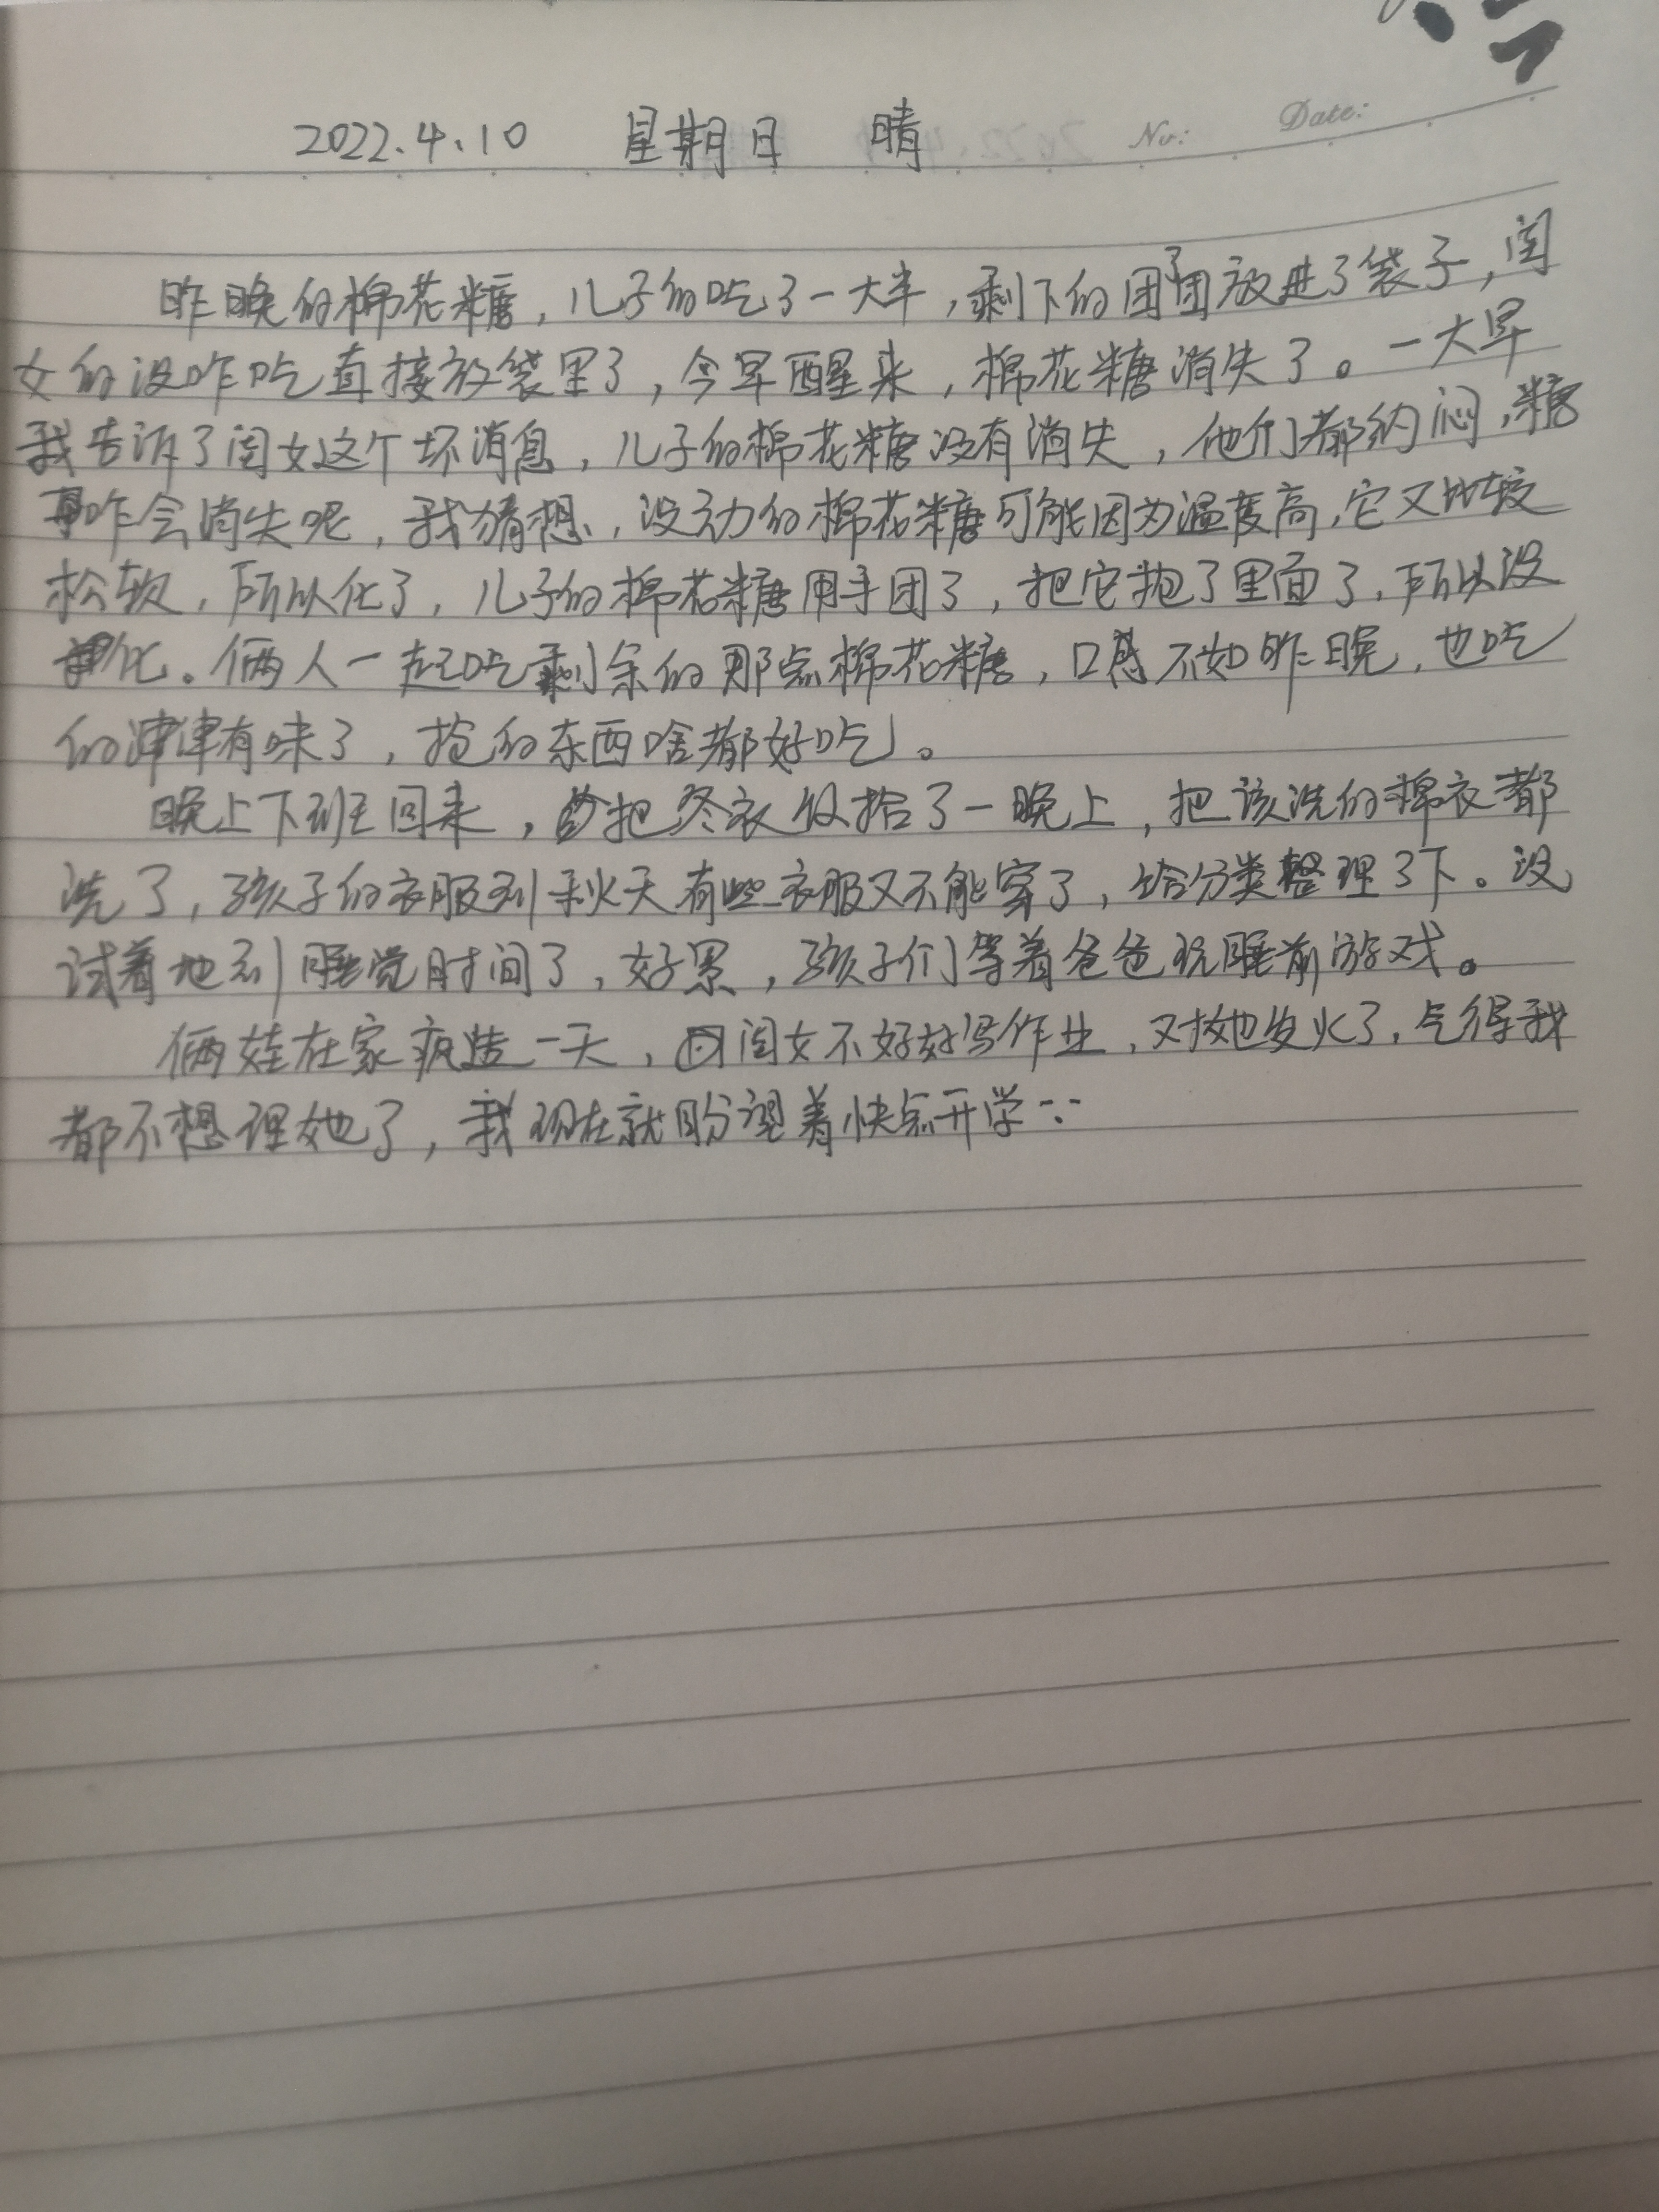 2022.4.10 星期日 晴 No: Date:
昨晚的棉花糖,儿子的吃了一大半,剩下的团了团放进了袋子,闺
女的没咋吃直接放袋里了,今早醒来,棉花糖消失了。一大早
我告诉了闺女这个坏消息,儿子的棉花糖没有消失,他们都纳闷,糖
咋会消失呢,我猜想,没动的棉花糖可能因为温度高,它又比较
松软,所以化了,儿子的棉花糖用手团了,把它抱了里面了,所以没
化。俩人一起吃剩余的那点棉花糖,口感不如昨晚,也吃
的津津有味了,抢的东西啥都好吃。
晚上下班回来,把冬衣收拾了一晚上,把该洗的棉衣都
洗了,孩子的衣服到秋天有些衣服又不能穿了,给分类整理了下。没
试着地到睡觉时间了,好累,孩子们等着爸爸玩睡前游戏。
俩娃在家疯造一天,因闺女不好好写作业,又对她发火了,气得我
都不想理她了,我现在就盼望着快点开学…